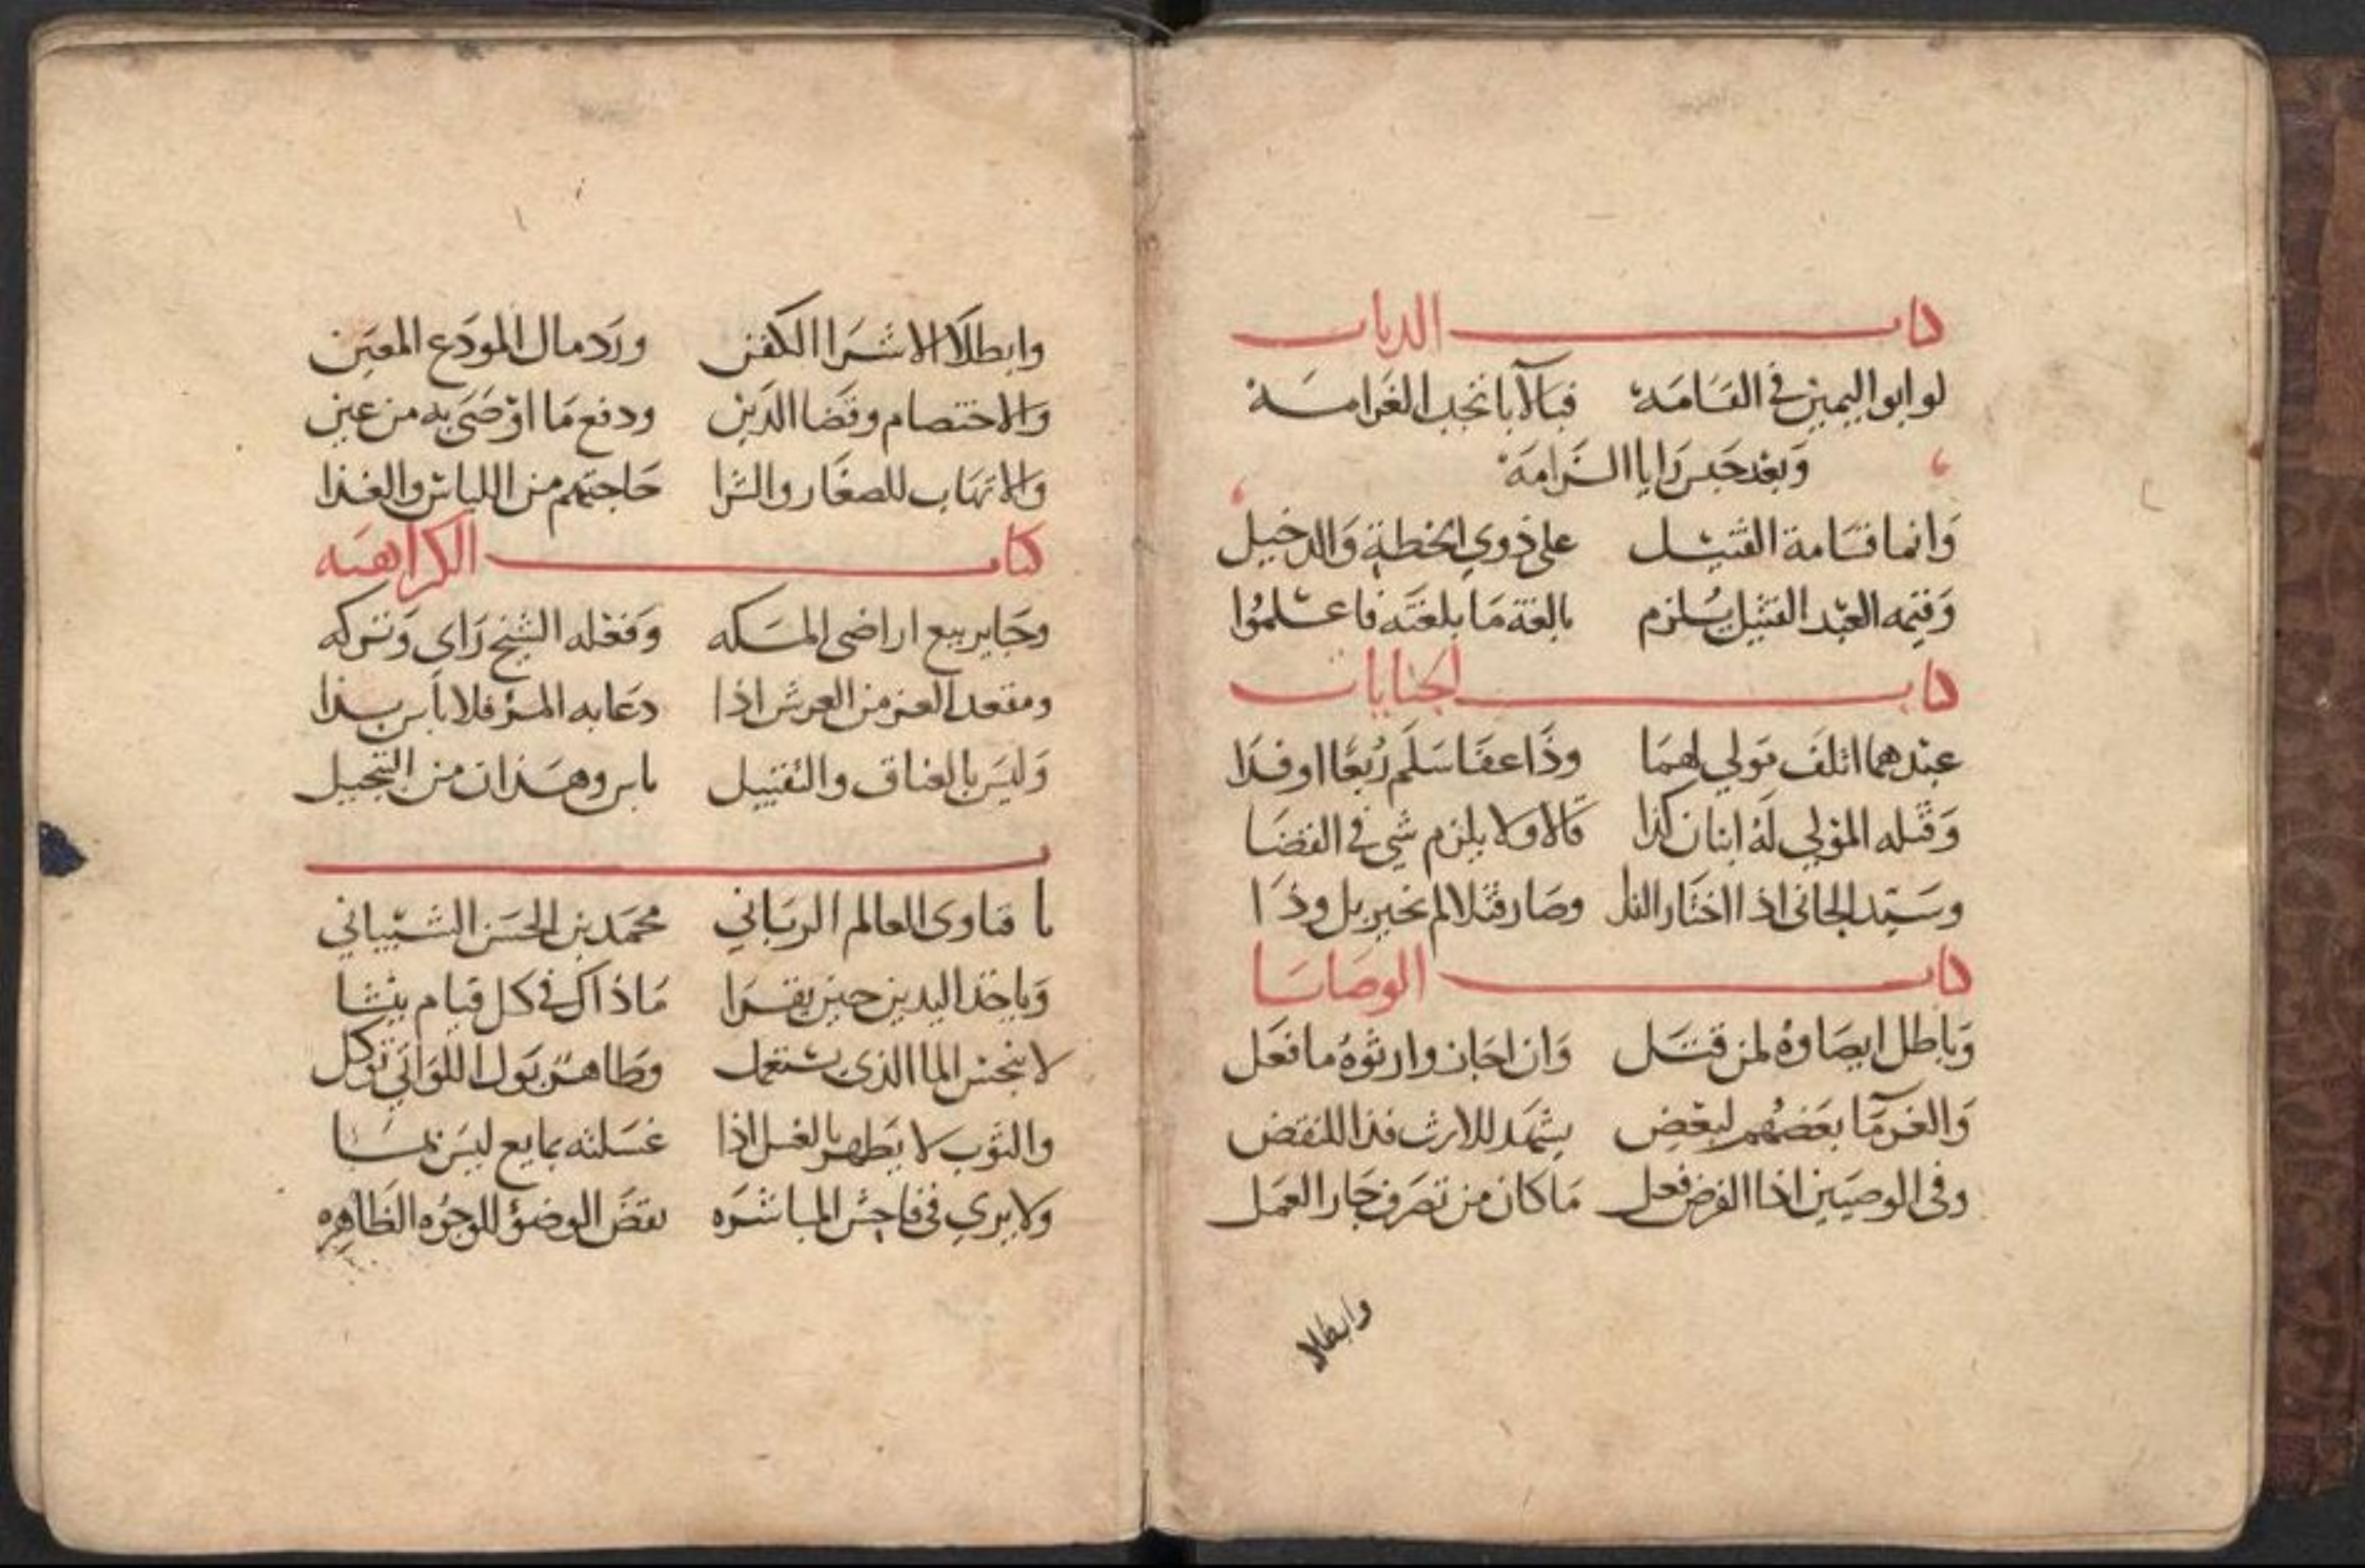 كتاب الديات
لو ابوا اليمين في القسامة فبالآبا تجب الغرامة
وبعد حبس رايا الزامه
وانما قسامة القتيل على ذوي الخطة والدخيل
وقيمه العبد القتيل يلزم بالغة ما بلغته فاعلموا
كتاب الجنايات
عبدهما اتلف مولي لهما وذا عفا سلم ربعا او فدا
وقتله المولي له ابنان كذا قالا ولا يلزم شي في القضا
وسيد الجاني اذا اختار الفدا وصار قتلا لم يخير بل وذا
كتاب الوصايا
وباطل ايصاوه لمن قتل وان اجاز وارثوه ما فعل
والغرما بعضهم لبعض يشهد للارث فذا للنقض
وفي الوصيين اذا الفرض فعل ما كان من تصرف جاز العمل
وابطلا
وابطلا الا شرا الكفن ورد مال المودع المعين
والاختصام وقضا الدين ودفع ما اوصى به من عين
والاتهاب للصغار والشرا حاجتهم من اللباس والغذا
كتاب الكراهيه
وجايز بيع اراضى المكه وفعله الشيخ راى وتركه
ومقعد العز من العرش اذا دعا به المرؤ فلا باس بذا
وليس بالعناق والتقبيل باس وهذان من التبجيل
باب
ما فتاوى العالم الرباني محمد بن الحسن الشيباني
وياخذ اليدين حين يقرا ماذاك في كل قيام ينشا
لا ينجس الما الذى يستعمل وطاهر بول اللواتي توكل
والثوب لا يطهر بالغسل اذا غسلته بمايع ليس بما
ولا يري في فاحش المباشره نقض الوضؤ للوجوه الظاهره